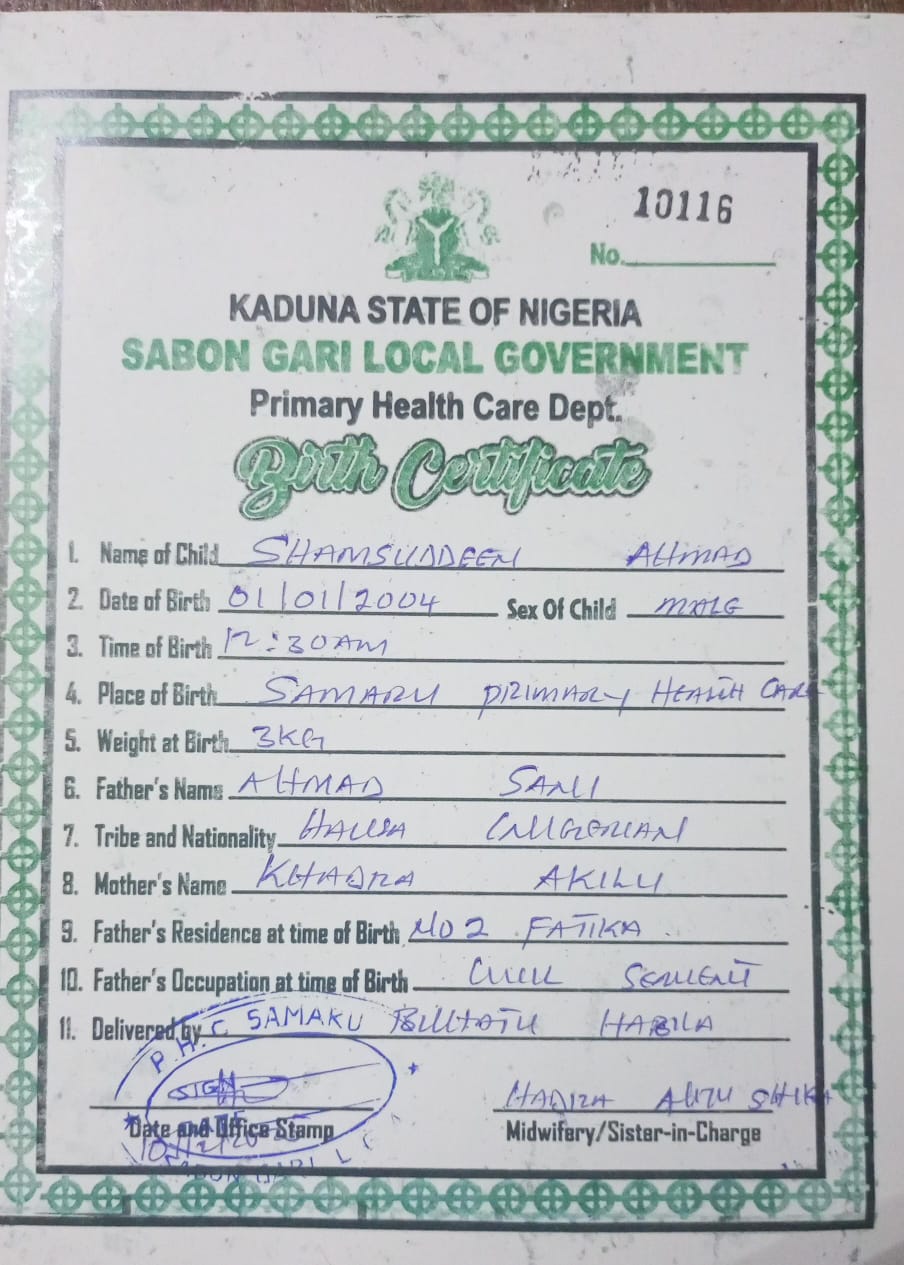 10116
No.
KADUNA STATE OF NIGERIA
SABON GARI LOCAL GOVERNMENT
Primary Health Care Dept.
Birth Certificate
1. Name of Child SHAMSUDDEEN AHMAD
2. Date of Birth 01/01/2004 Sex Of Child MALE
3. Time of Birth 12:30AM
4. Place of Birth SAMARU PRIMARY HEALTH CARE
5. Weight at Birth 3KG
6. Father's Name AHMAD SANI
7. Tribe and Nationality HAUSA
8. Mother's Name KHADRA AKILU
9. Father's Residence at time of Birth NO 2 FATIKA
10. Father's Occupation at time of Birth CIVIL SERVENT
11. Delivered by HABILA
P.H.C SAMARU
SIGN
DATE
Date and Office Stamp
SABON GARI L
HADIZA ALIYU SHIKA
Midwifery/Sister-in-Charge